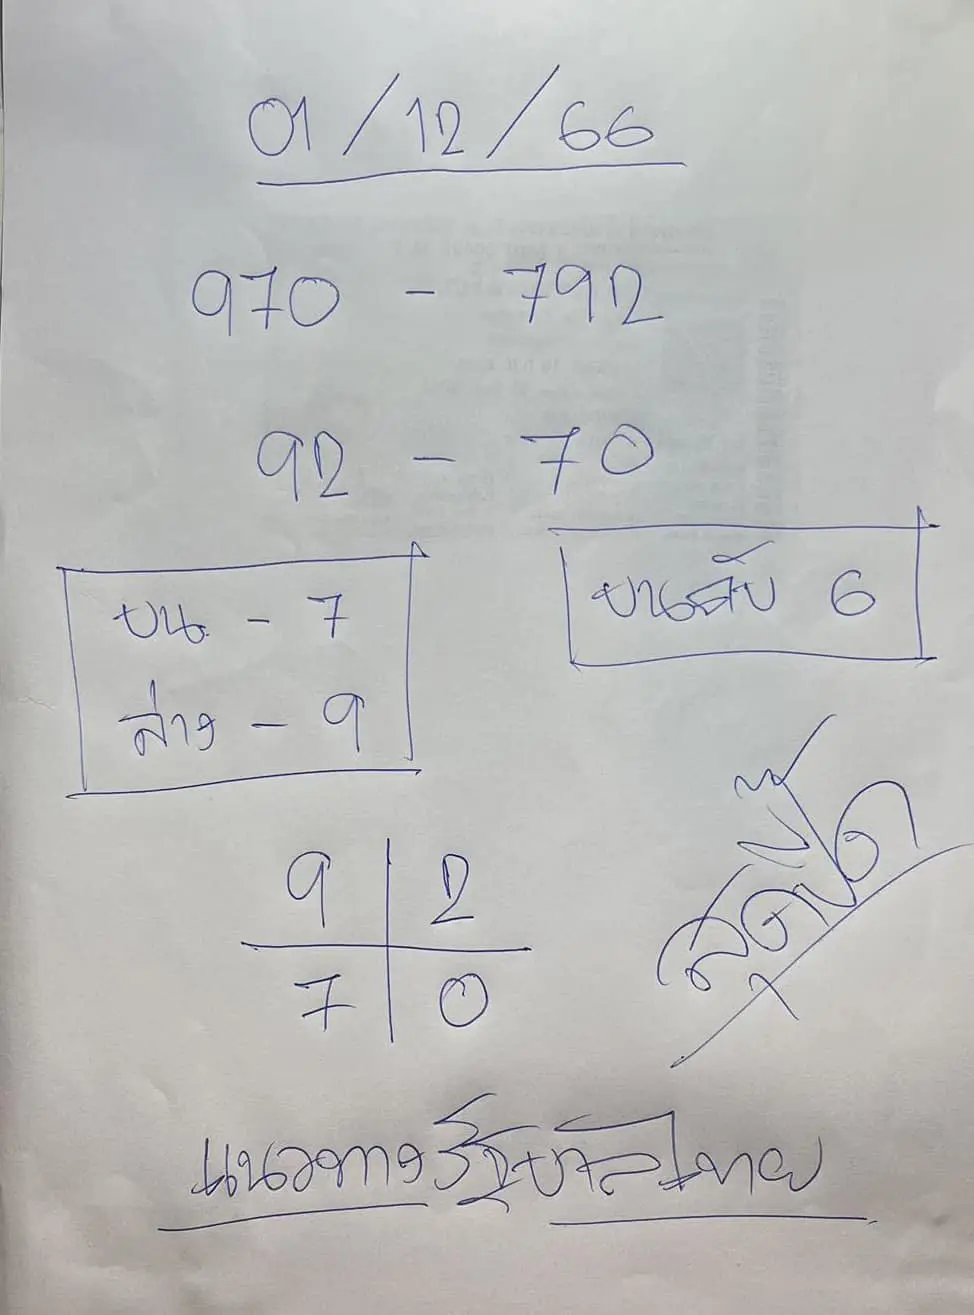 01/12/66
970 - 792
92 - 70
บน - 7
ล่าง - 9
บนดับ 6
9 2
7 0
แนวทางรัฐบาลไทย